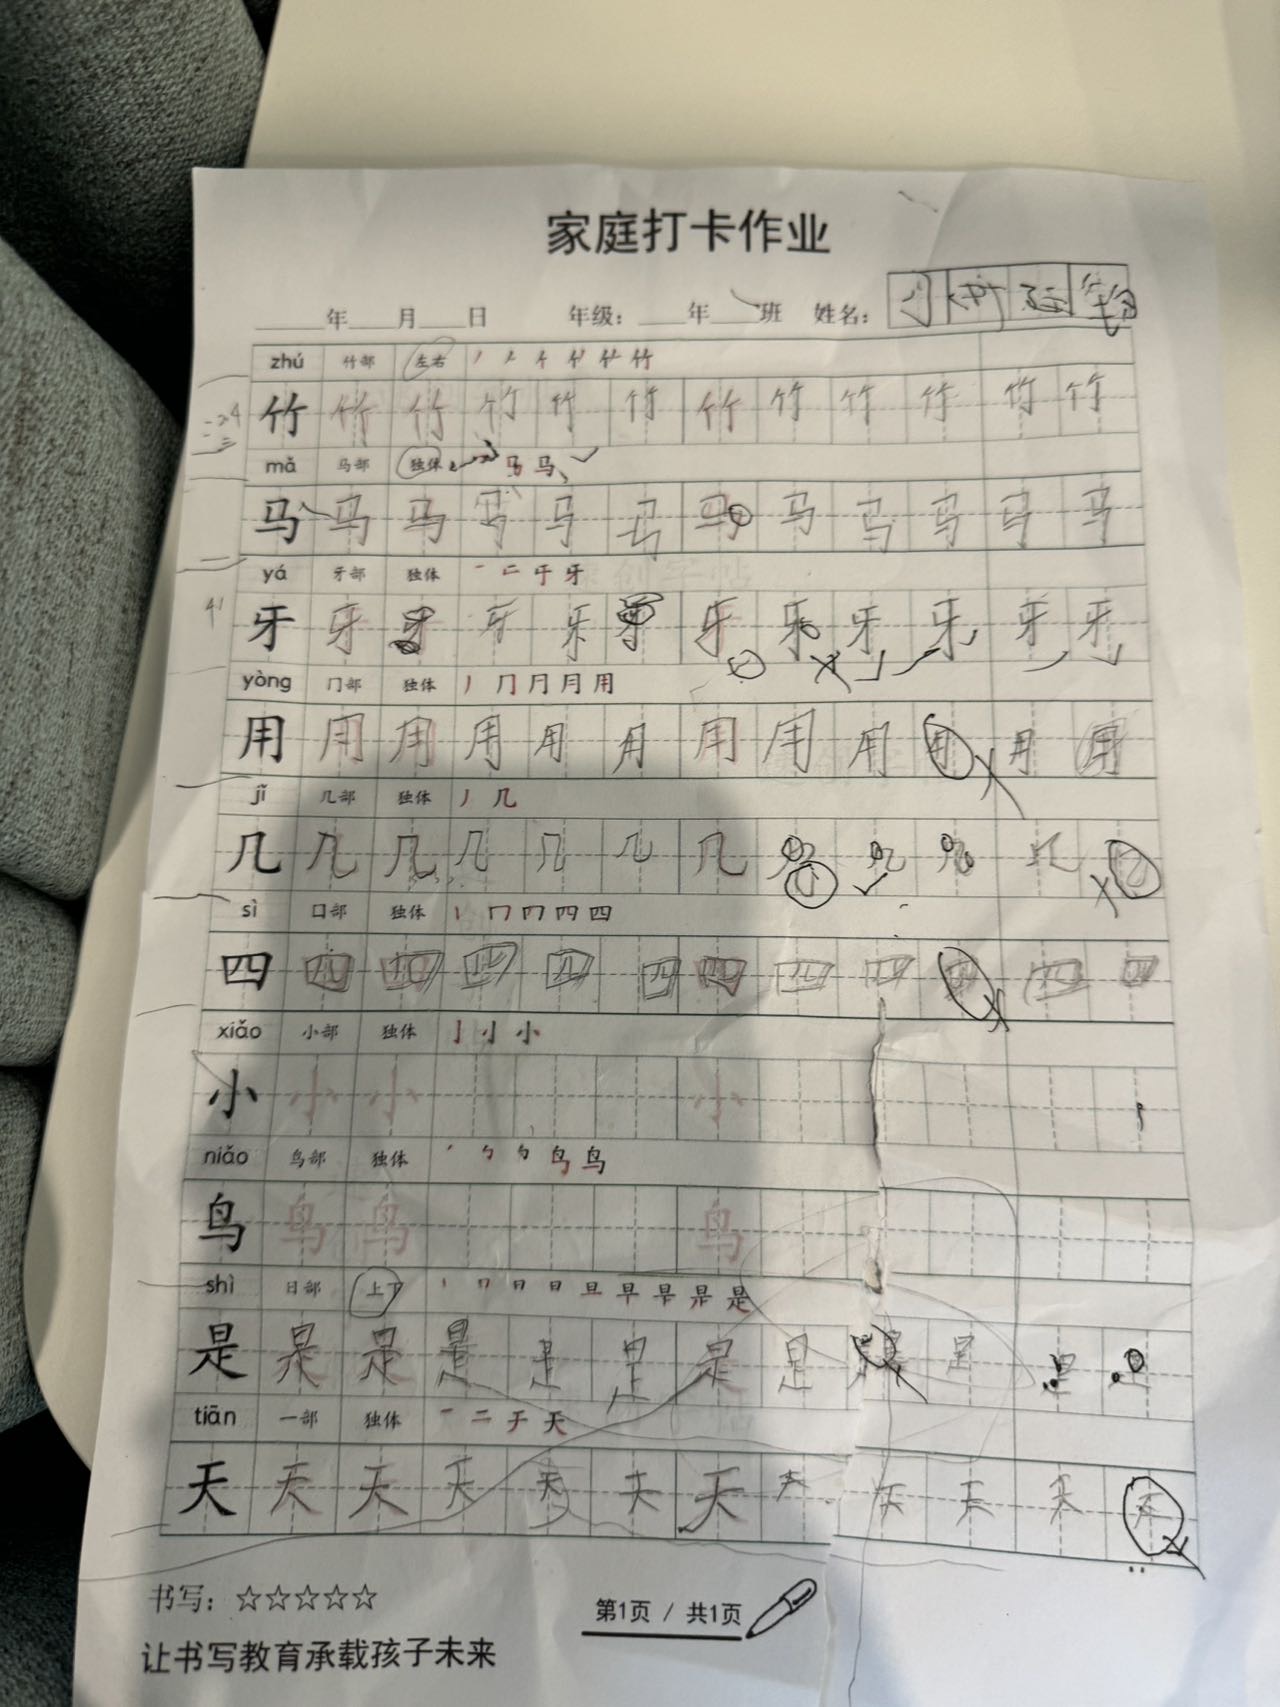 家庭打卡作业
____年____月____日 年级：____年____班 姓名：小
zhú 竹部 左右 竹
竹 竹 竹 竹 竹 竹 竹 竹 竹 竹 竹 竹
mǎ 马部 独体 马 马
马 马 马 马 马 马 马 马 马 马 马 马
yá 牙部 独体 一 二 于 牙
牙 牙 牙 牙 牙 牙 牙 牙 牙 牙 牙 牙
yòng 门部 独体 丿 冂 月 月 用
用 用 用 用 用 用 用 用 用 用 用 用
jǐ 几部 独体 丿 几
几 几 几 几 几 几 几 几 几 几 几 几
sì 口部 独体 丨 冂 四 四
四 四 四 四 四 四 四 四 四 四 四 四
xiǎo 小部 独体 亅 小 小
小 小 小 小
niǎo 鸟部 独体 鸟 鸟
鸟 鸟 鸟 鸟
shì 日部 上下 丨 冂 日 日 旦 早 是
是 是 是 是 是 是 是 是 是 是 是
天 tiān 一部 独体 一 二 于 天
天 天 天 天 天 天 天 天 天 天 天 天
书写：☆☆☆☆☆
第1页 / 共1页
让书写教育承载孩子未来